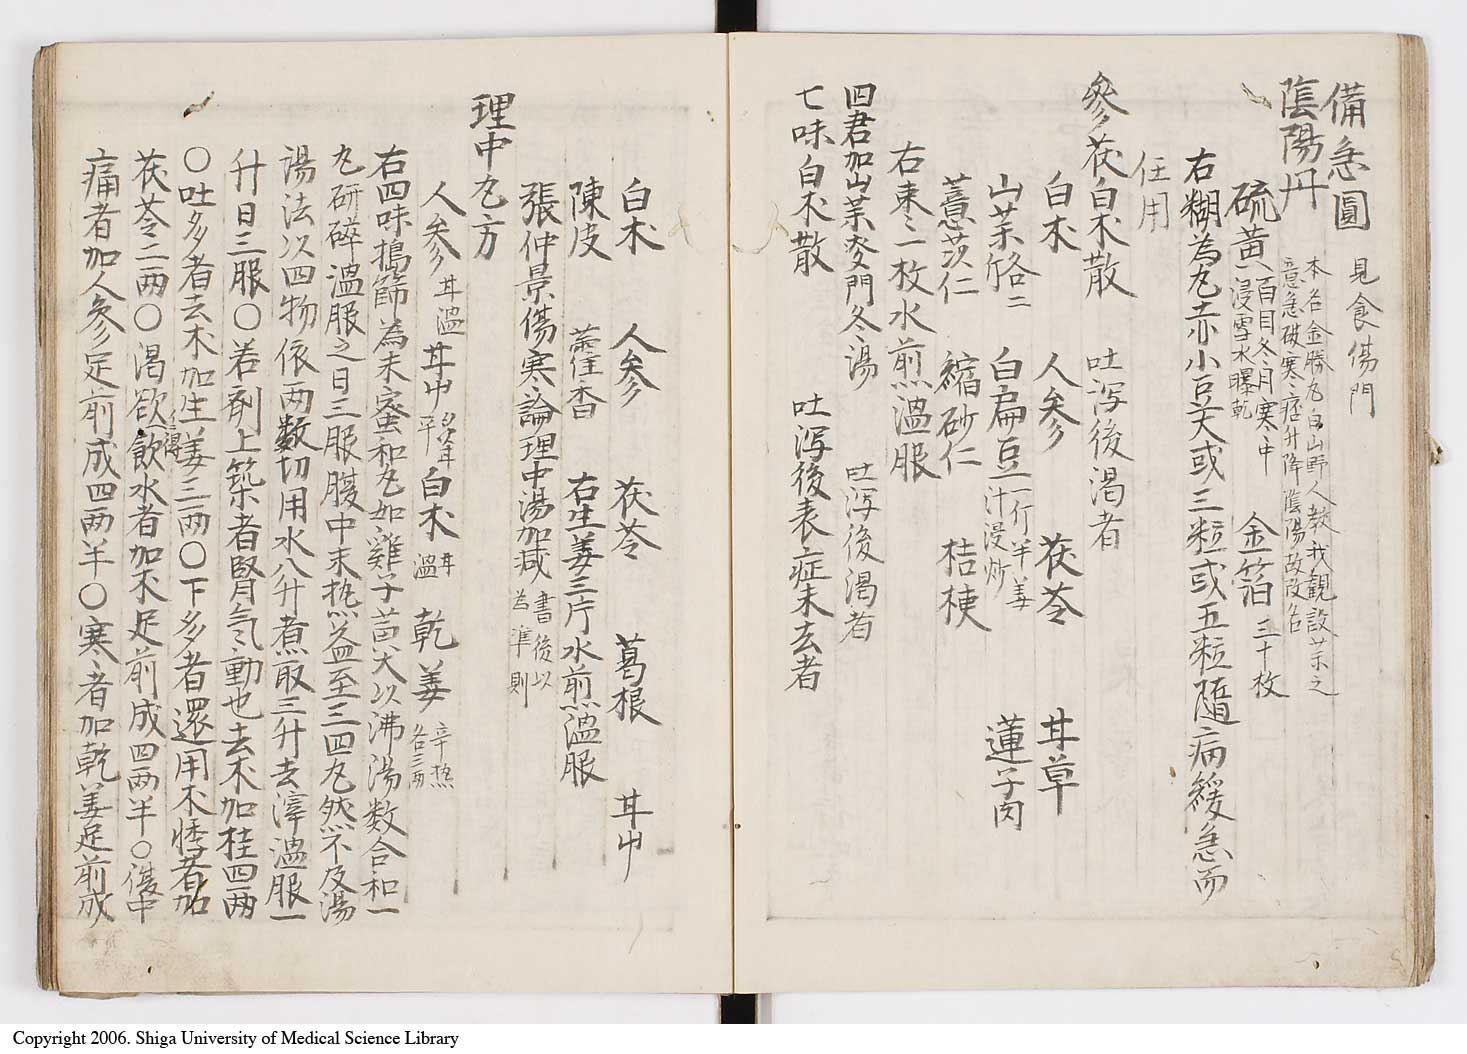 備急圓 見食傷門
陰陽丹 本名金勝丸白山野人教我観設業之
意急破寒痞升降陰陽故改名
硫黄 八百目冬月寒中
浸雪水曝乾 金箔 三十枚
右糊為丸赤小豆大或三粒或五粒隨病緩急而
任用
參茯白朮散 吐瀉後渴者
白朮 人參 茯苓 甘草
山茱 二 白扁豆 一斤半姜
汁浸炒 蓮子肉
薏苡仁 縮砂仁 桔梗
右棗二枚水煎溫服
四君加山茱麥門冬湯 吐瀉後渴者
七味白朮散 吐瀉後表症未去者
白朮 人參 茯苓 葛根 甘中
陳皮 藿香 右生姜三片水煎溫服
張仲景傷寒論理中湯加減 書後以
為準則
理中丸方
人參 甘溫 甘中 平 白朮 甘
溫 乾姜 辛热
各三两
右四味搗篩為末蜜和丸如雞子黃大以沸湯数合和一
丸研碎溫服之日三服腹中未热益至三四丸然不及湯
湯法以四物依两数切用水八升煮取三升去滓溫服一
升日三服〇若剤上築者腎气動也去朮加桂四两
〇吐多者去朮加生姜三两〇下多者還用朮悸者加
茯苓二两〇渴欲得飲水者加朮足前成四两半〇腹中
痛者加人參足前成四两半〇寒者加乾姜足前成
Copyright 2006. Shiga University of Medical Science Library